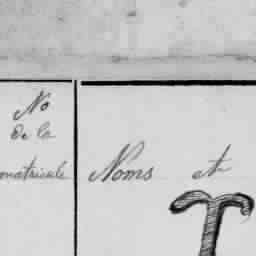 No
de la
matricule
Noms et
T